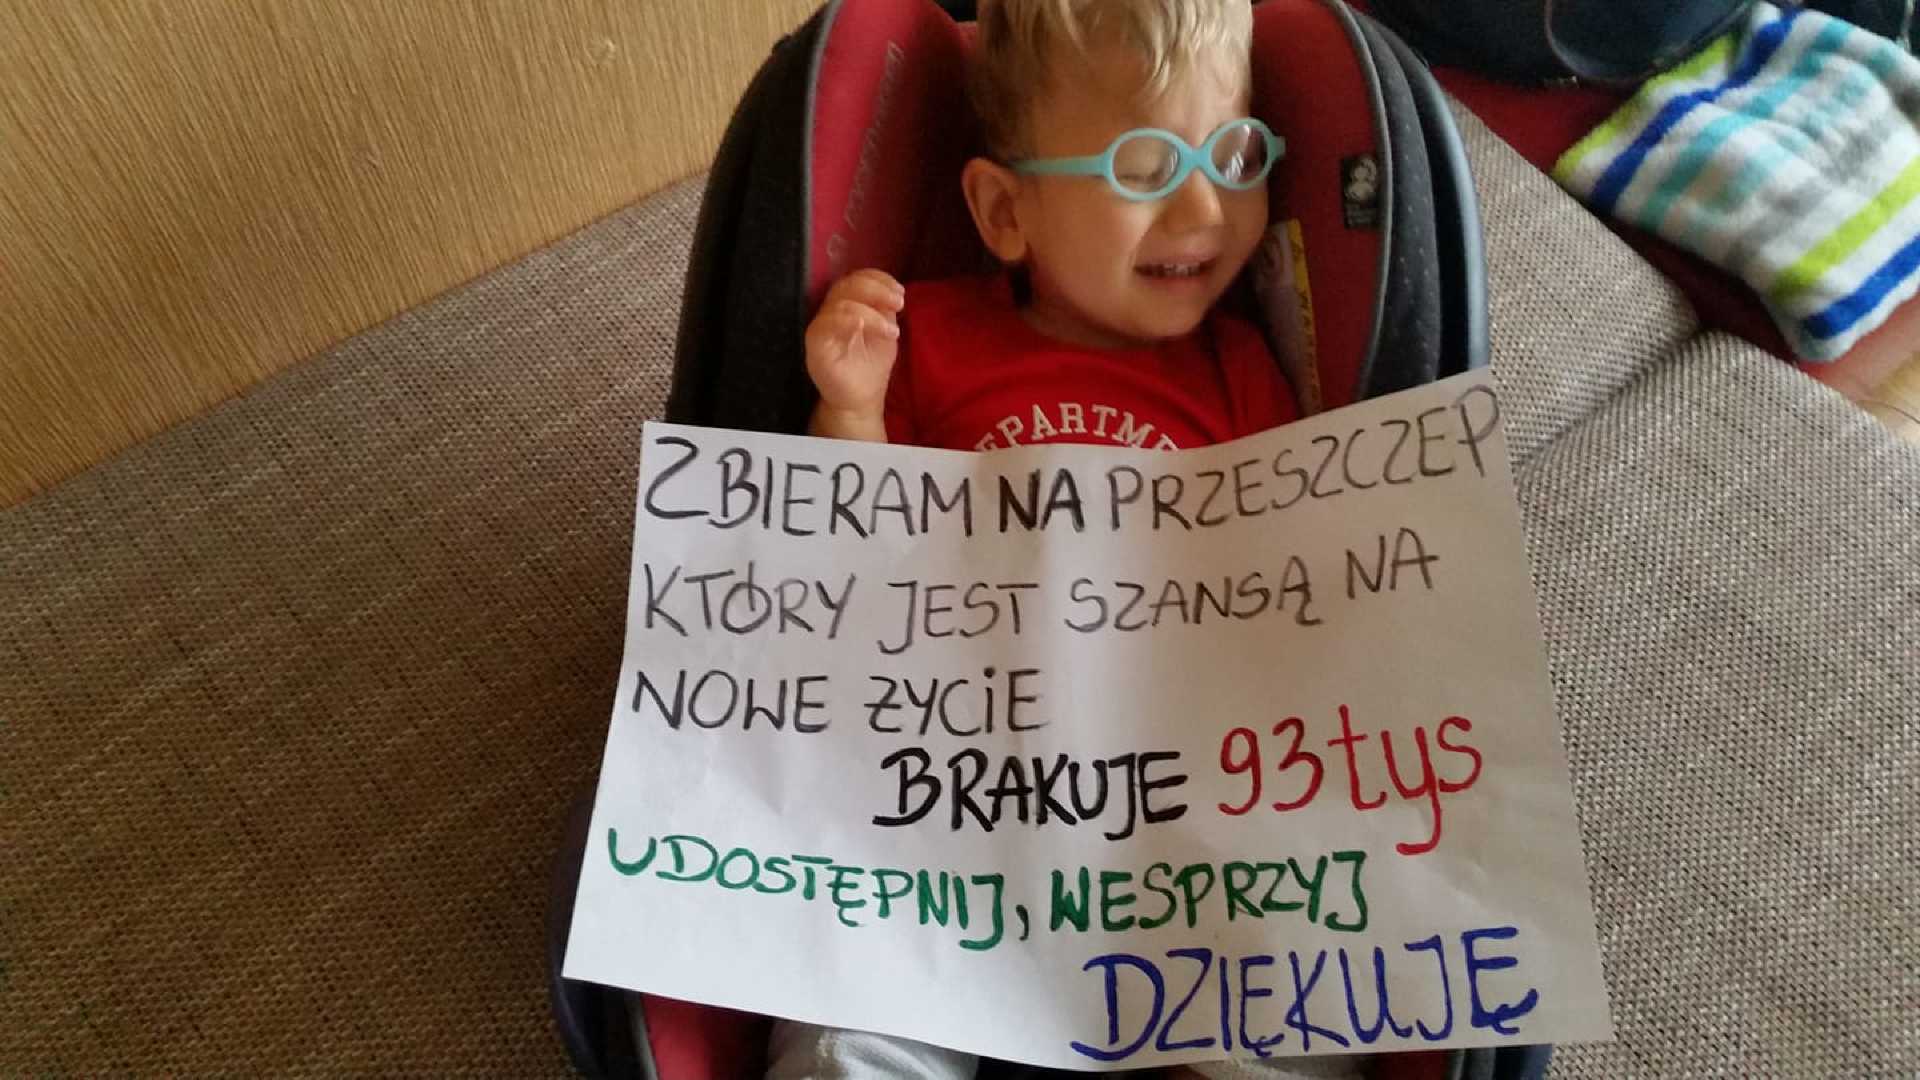 DEPARTME
ZBIERAM NA PRZESZCZEP
KTÓRY JEST SZANSĄ NA
NOWE ŻYCIE
BRAKUJE 93tys
UDOSTĘPNIJ, WESPRZYJ
DZIĘKUJĘ